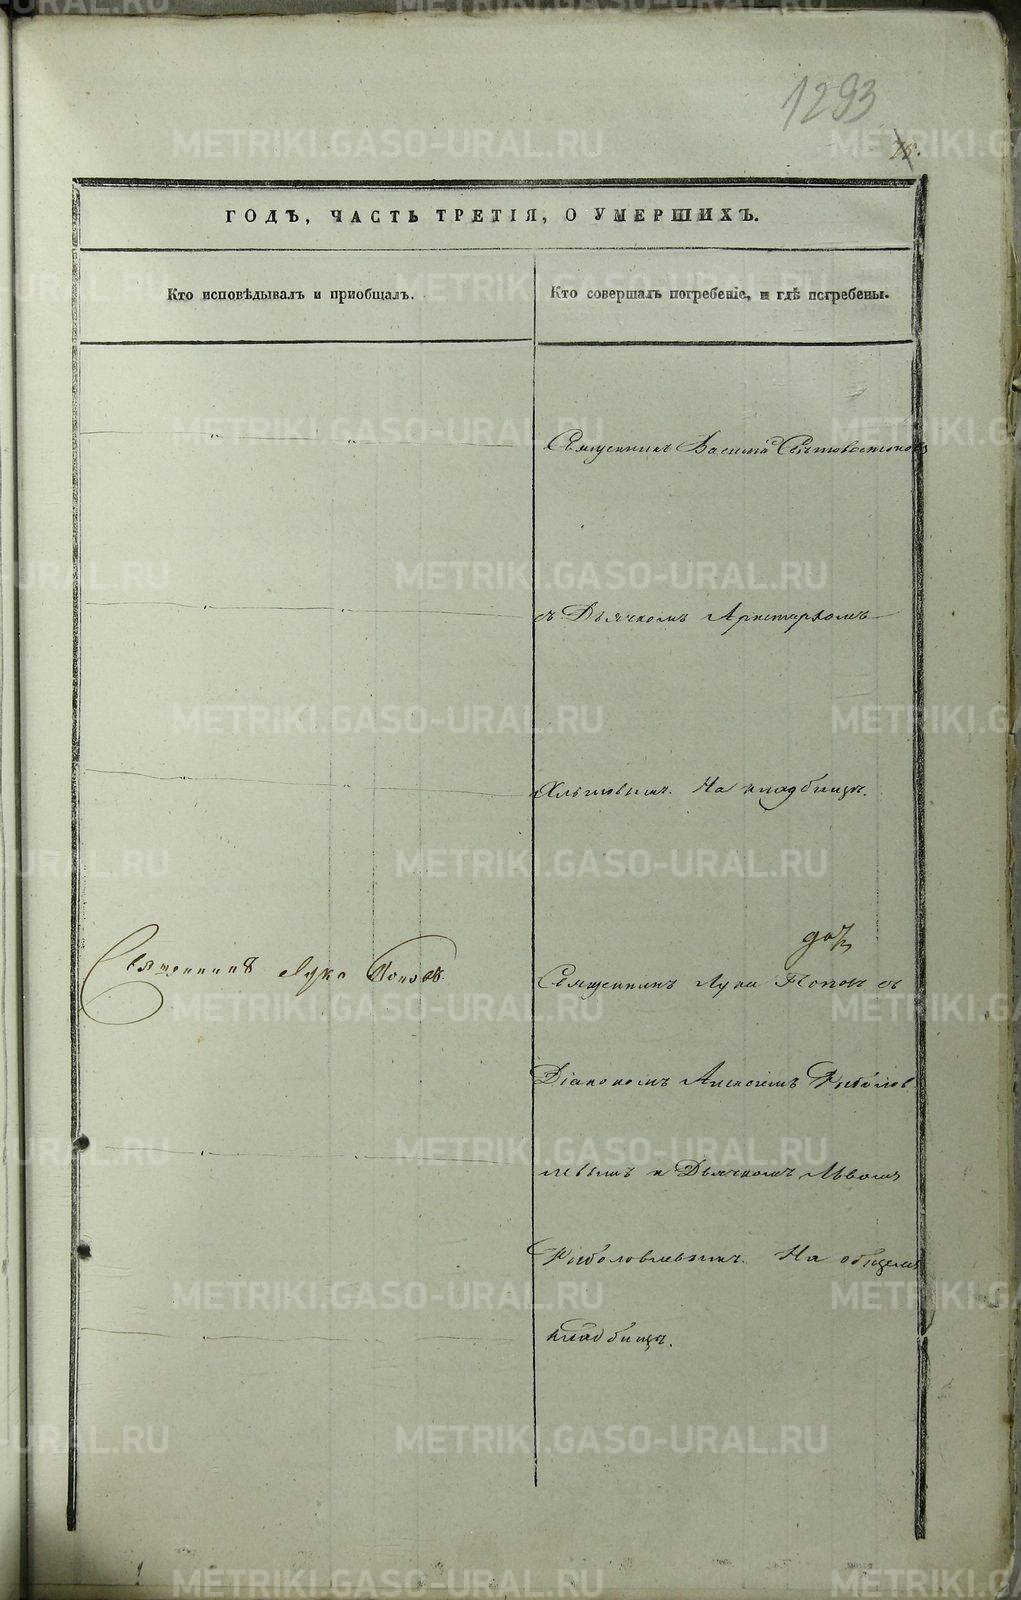 1293
75.
ГОДЪ, ЧАСТЬ ТРЕТІЯ, О УМЕРШИХЪ.
Кто исповѣдывалъ и приобщалъ.
Кто совершалъ погребеніе, и гдѣ погребены.
Священникъ Василій Свѣтовостоковъ
съ Дьячкомъ Аристархомъ
На кладбищѣ.
Священникъ Лука Поповъ.
Священникъ Лука Поповъ съ
Діакономъ Алексіемъ Рыболов
левымъ и Дьячкомъ Львомъ
Рыболовлевымъ. На общемъ
кладбищѣ.
METRIKI.GASO-URAL.RU